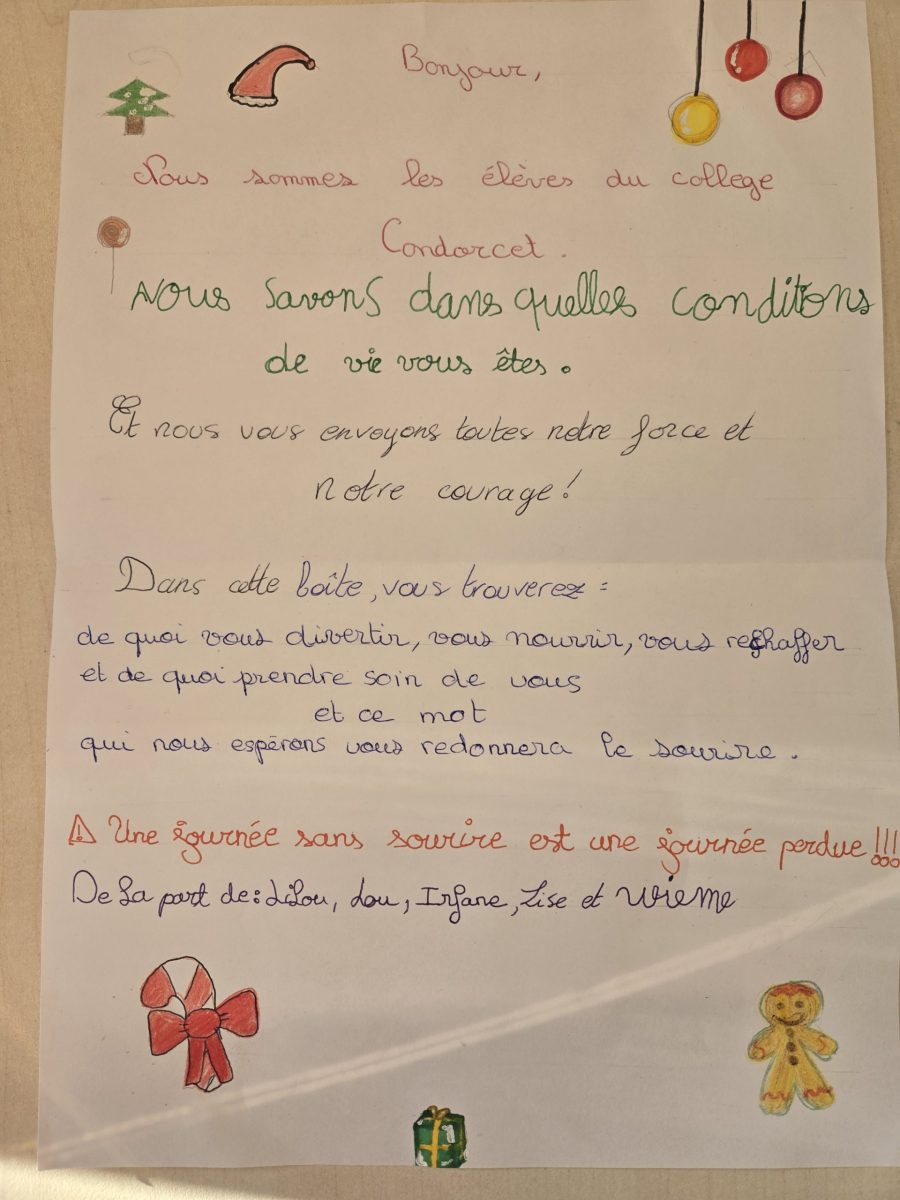 Bonjour,
Nous sommes les élèves du college
Condorcet.
Nous savons dans quelles conditions
de vie vous êtes.
Et nous vous envoyons toutes notre force et
notre courage!
Dans cette boîte, vous trouverez :
de quoi vous divertir, vous nourrir, vous rechaffer
et de quoi prendre soin de vous
et ce mot
qui nous espérons vous redonnera le sourire.
⚠ Une journée sans sourire est une journée perdue!!!
De la part de: Lilou, Lou, Irfane, Lise et Wieme